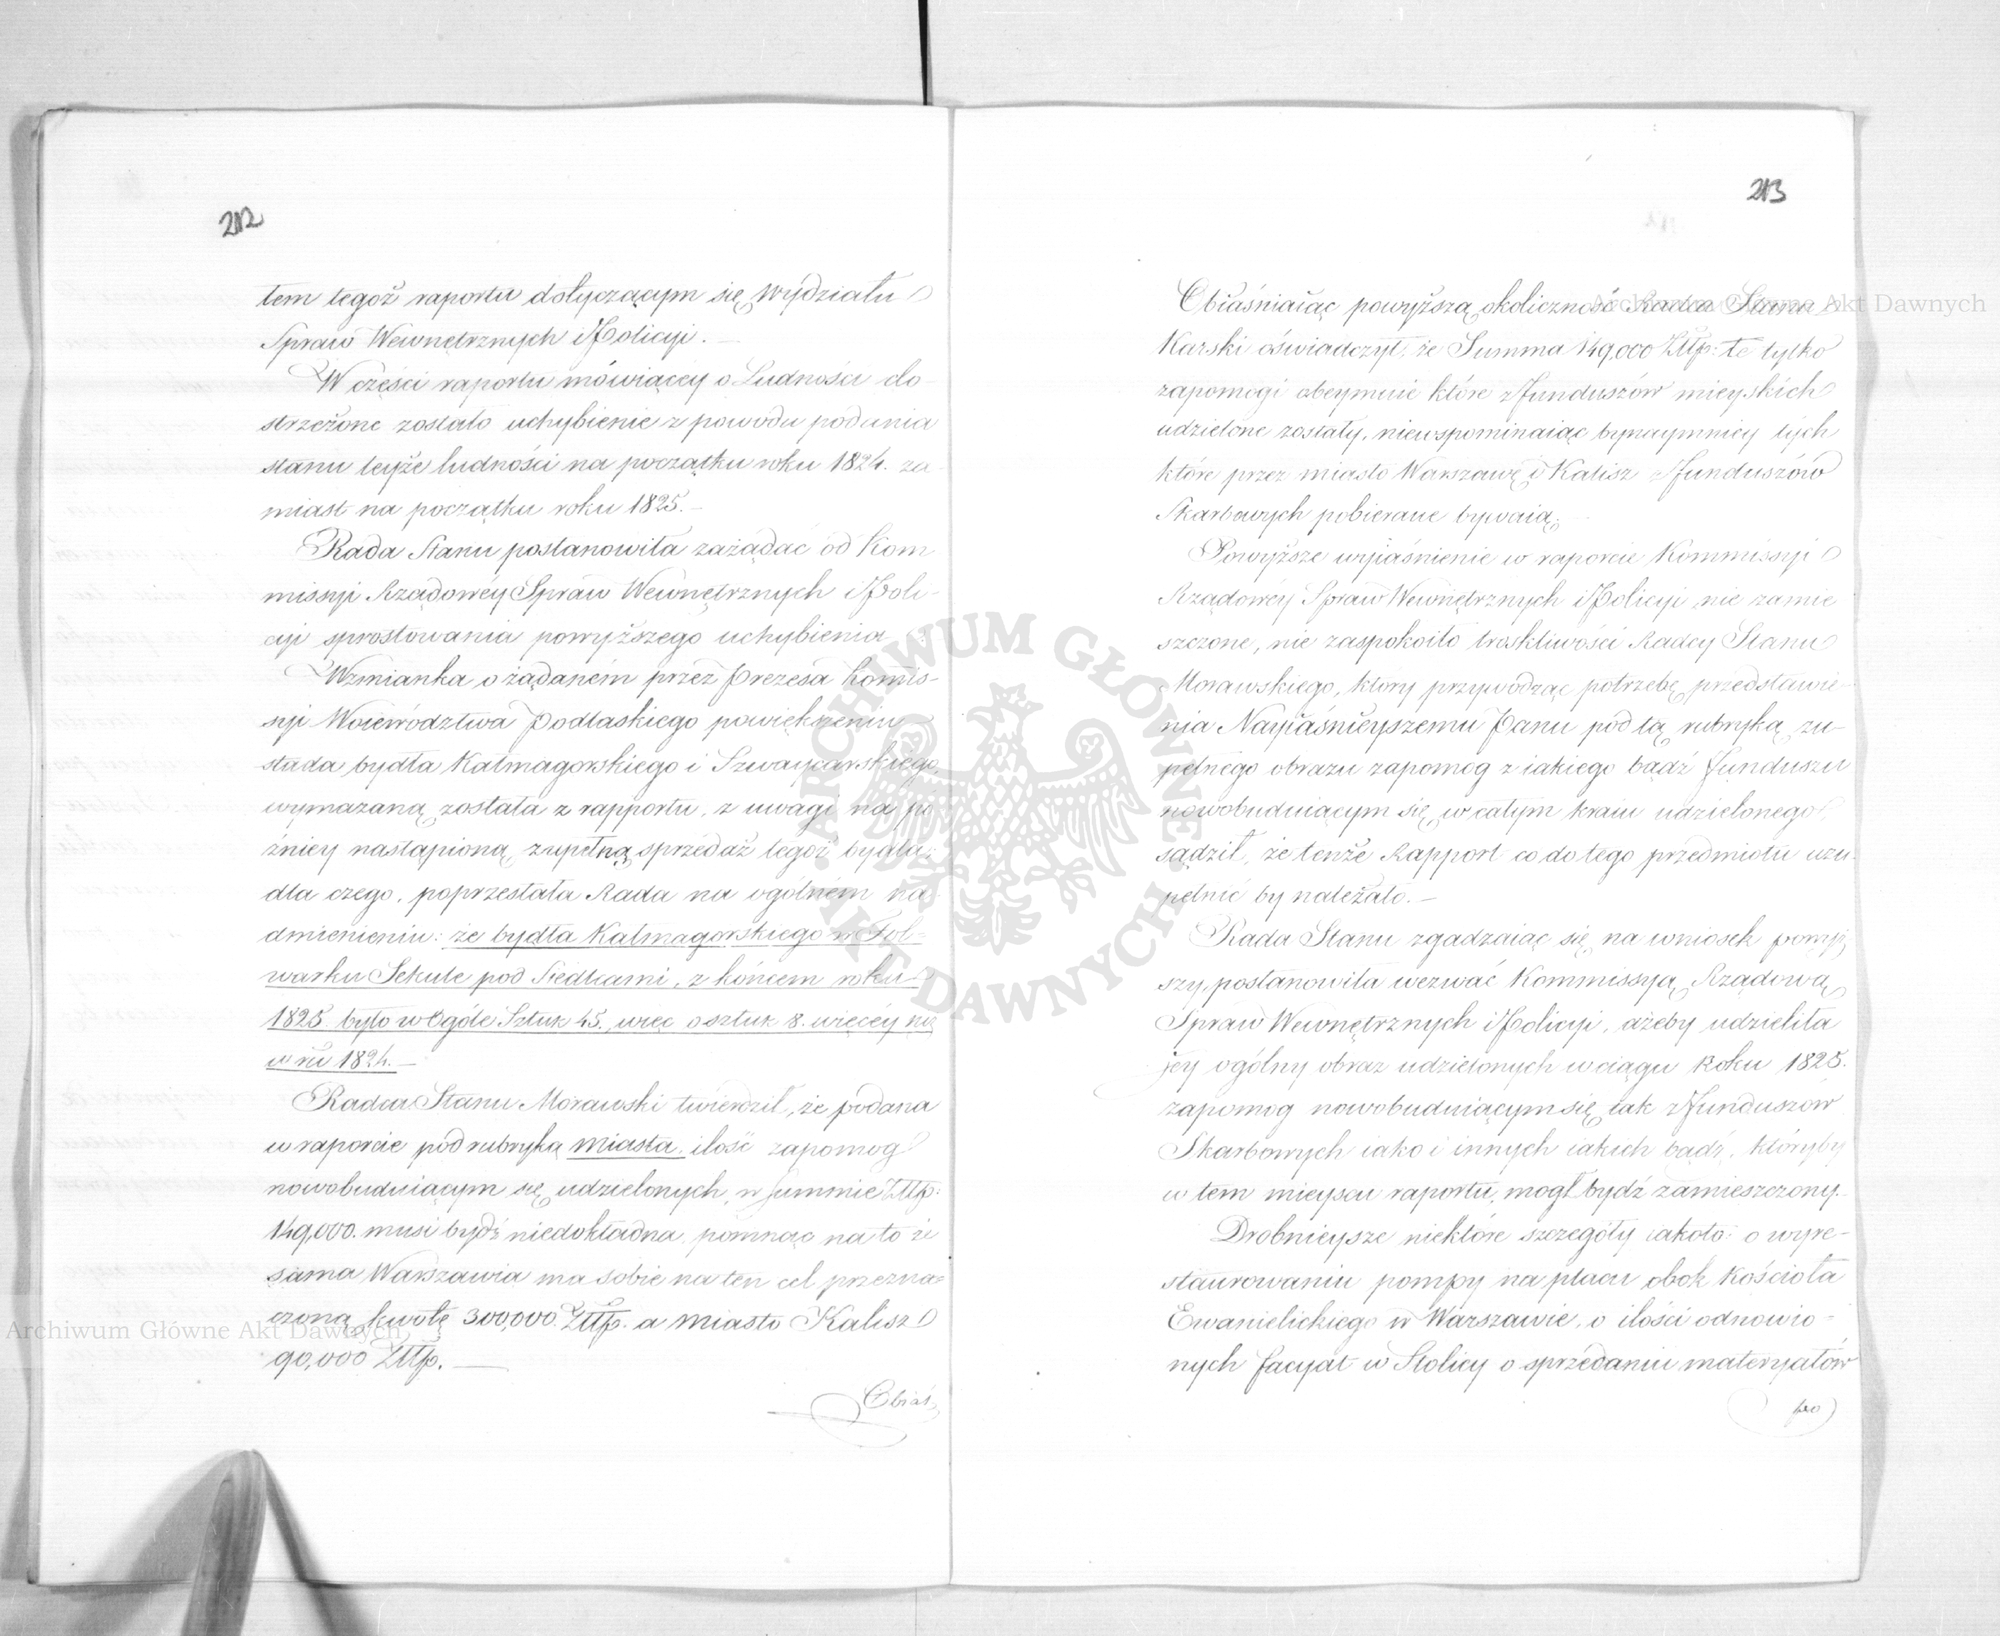 212
tem tegoż raportu dotyczącym się Wydziału
Spraw Wewnętrznych i Policyi. —
W części raportu mówiącey o Ludności do-
strzeżone zostało uchybienie z powodu podania
stanu teyże ludności na początku roku 1824. za-
miast na początku roku 1825. —
Rada Stanu postanowiła zażądać od Kom
missyi Rządowéy Spraw Wewnętrznych i Poli-
cyi sprostowania powyższego uchybienia.
Wzmianka o żądaném przez Prezesa Kommis-
syi Woiewództwa Podlaskiego powiększeniu
stada bydła Kalmagorskiego i Szwaycarskiego,
wymazaną została z rapportu, z uwagi na pó
źniey nastąpioną zupełną sprzedaż tegoż bydła;
dla czego, poprzestała Rada na ogólném na-
dmienieniu: że bydła Kalmagorskiego w Fol-
warku Sekule pod Siedlcami, z końcem roku
1825. było w Ogóle Sztuk 45. więc o sztuk 8. więcéy niż
w ru 1824. —
Radca Stanu Morawski twierdził, że podana
w raporcie pod rubryką miasta, ilość zapomog
nowobuduiącym się udzielonych, w summie Złłp:
149,000. musi bydź niedokładna, pomnąc na to że
sama Warszawa ma sobie na ten cel przezna=
czoną kwotę 300,000. Złłp. a miasto Kalisz
90,000 Złłp. —
Obiaś
213
Obiaśniaiąc powyższą okoliczność Radca Stanu
Karski oświadczył, że Summa 149,000 Złłp: te tylko
zapomogi obeymuie które z Funduszów mieyskich
udzielone zostały, niewspominaiąc bynaymniey tych
które przez miasto Warszawę i Kalisz z Funduszów
Skarbowych pobierane bywaią. —
Powyższe wyiaśnienie w raporcie Kommissyi
Rządowéy Spraw Wewnętrznych i Policyi nie zamie
szczone, nie zaspokoiło troskliwości Radcy Stanu
Morawskiego, który przywodząc potrzebę przedstawie-
nia Nayiaśnieyszemu Panu pod tą rubryką zu-
pełnego obrazu zapomog z iakiego bądź Funduszu
nowobuduiącym się w całym kraiu udzielonego,
sądził, że tenże Rapport co do tego przedmiotu uzu-
pełnić by należało. —
Rada Stanu zgadzaiąc się na wniosek powyż
szy, postanowiła wezwać Kommissyą Rządową
Spraw Wewnętrznych i Policyi, ażeby udzieliła
jey ogólny obraz udzielonych w ciągu Roku 1825.
zapomog nowobuduiącym się iak z Funduszów
Skarbowych iako i innych iakich bądź, któryby
w tem mieyscu raportu, mogł bydź zamieszczony.
Drobnieysze niektóre szczegóły iakoto: o wyre-
staurowaniu pompy na placu obok Kościoła
Ewanielickiego w Warszawie, o ilości odnowio-
nych facyat w Stolicy o sprzedaniu materyałów
po
Archiwum Główne Akt Dawnych
Archiwum Główne Akt Dawnych
ARCHIWUM GŁÓWNE AKT DAWNYCH